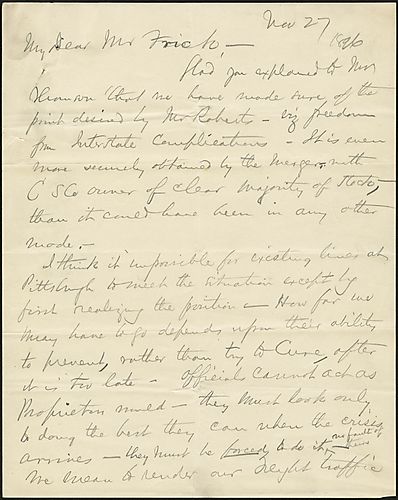 Nov 27
1896
My Dear Mr Frick, –
Glad you explained to Mr
Thomson that we have made sure of the
point desired by Mr Roberts – viz freedom
from Interstate Complications – It is even
more securely obtained by the Merger, with
C S Co owner of clear Majority of Stock,
than it could have been in any other
mode. –
I think it impossible for existing lines at
Pittsburgh to meet the situation except by
first realizing the position – How far we
may have to go depends upon their ability
to prevent, rather than try to Cure, after
it is too late – Officials cannot act as
Proprietors would – they must look only
to doing the best they can when the crisis
arrives – they must be forced to do it, – no fault of theirs
We mean to render our freight traffic